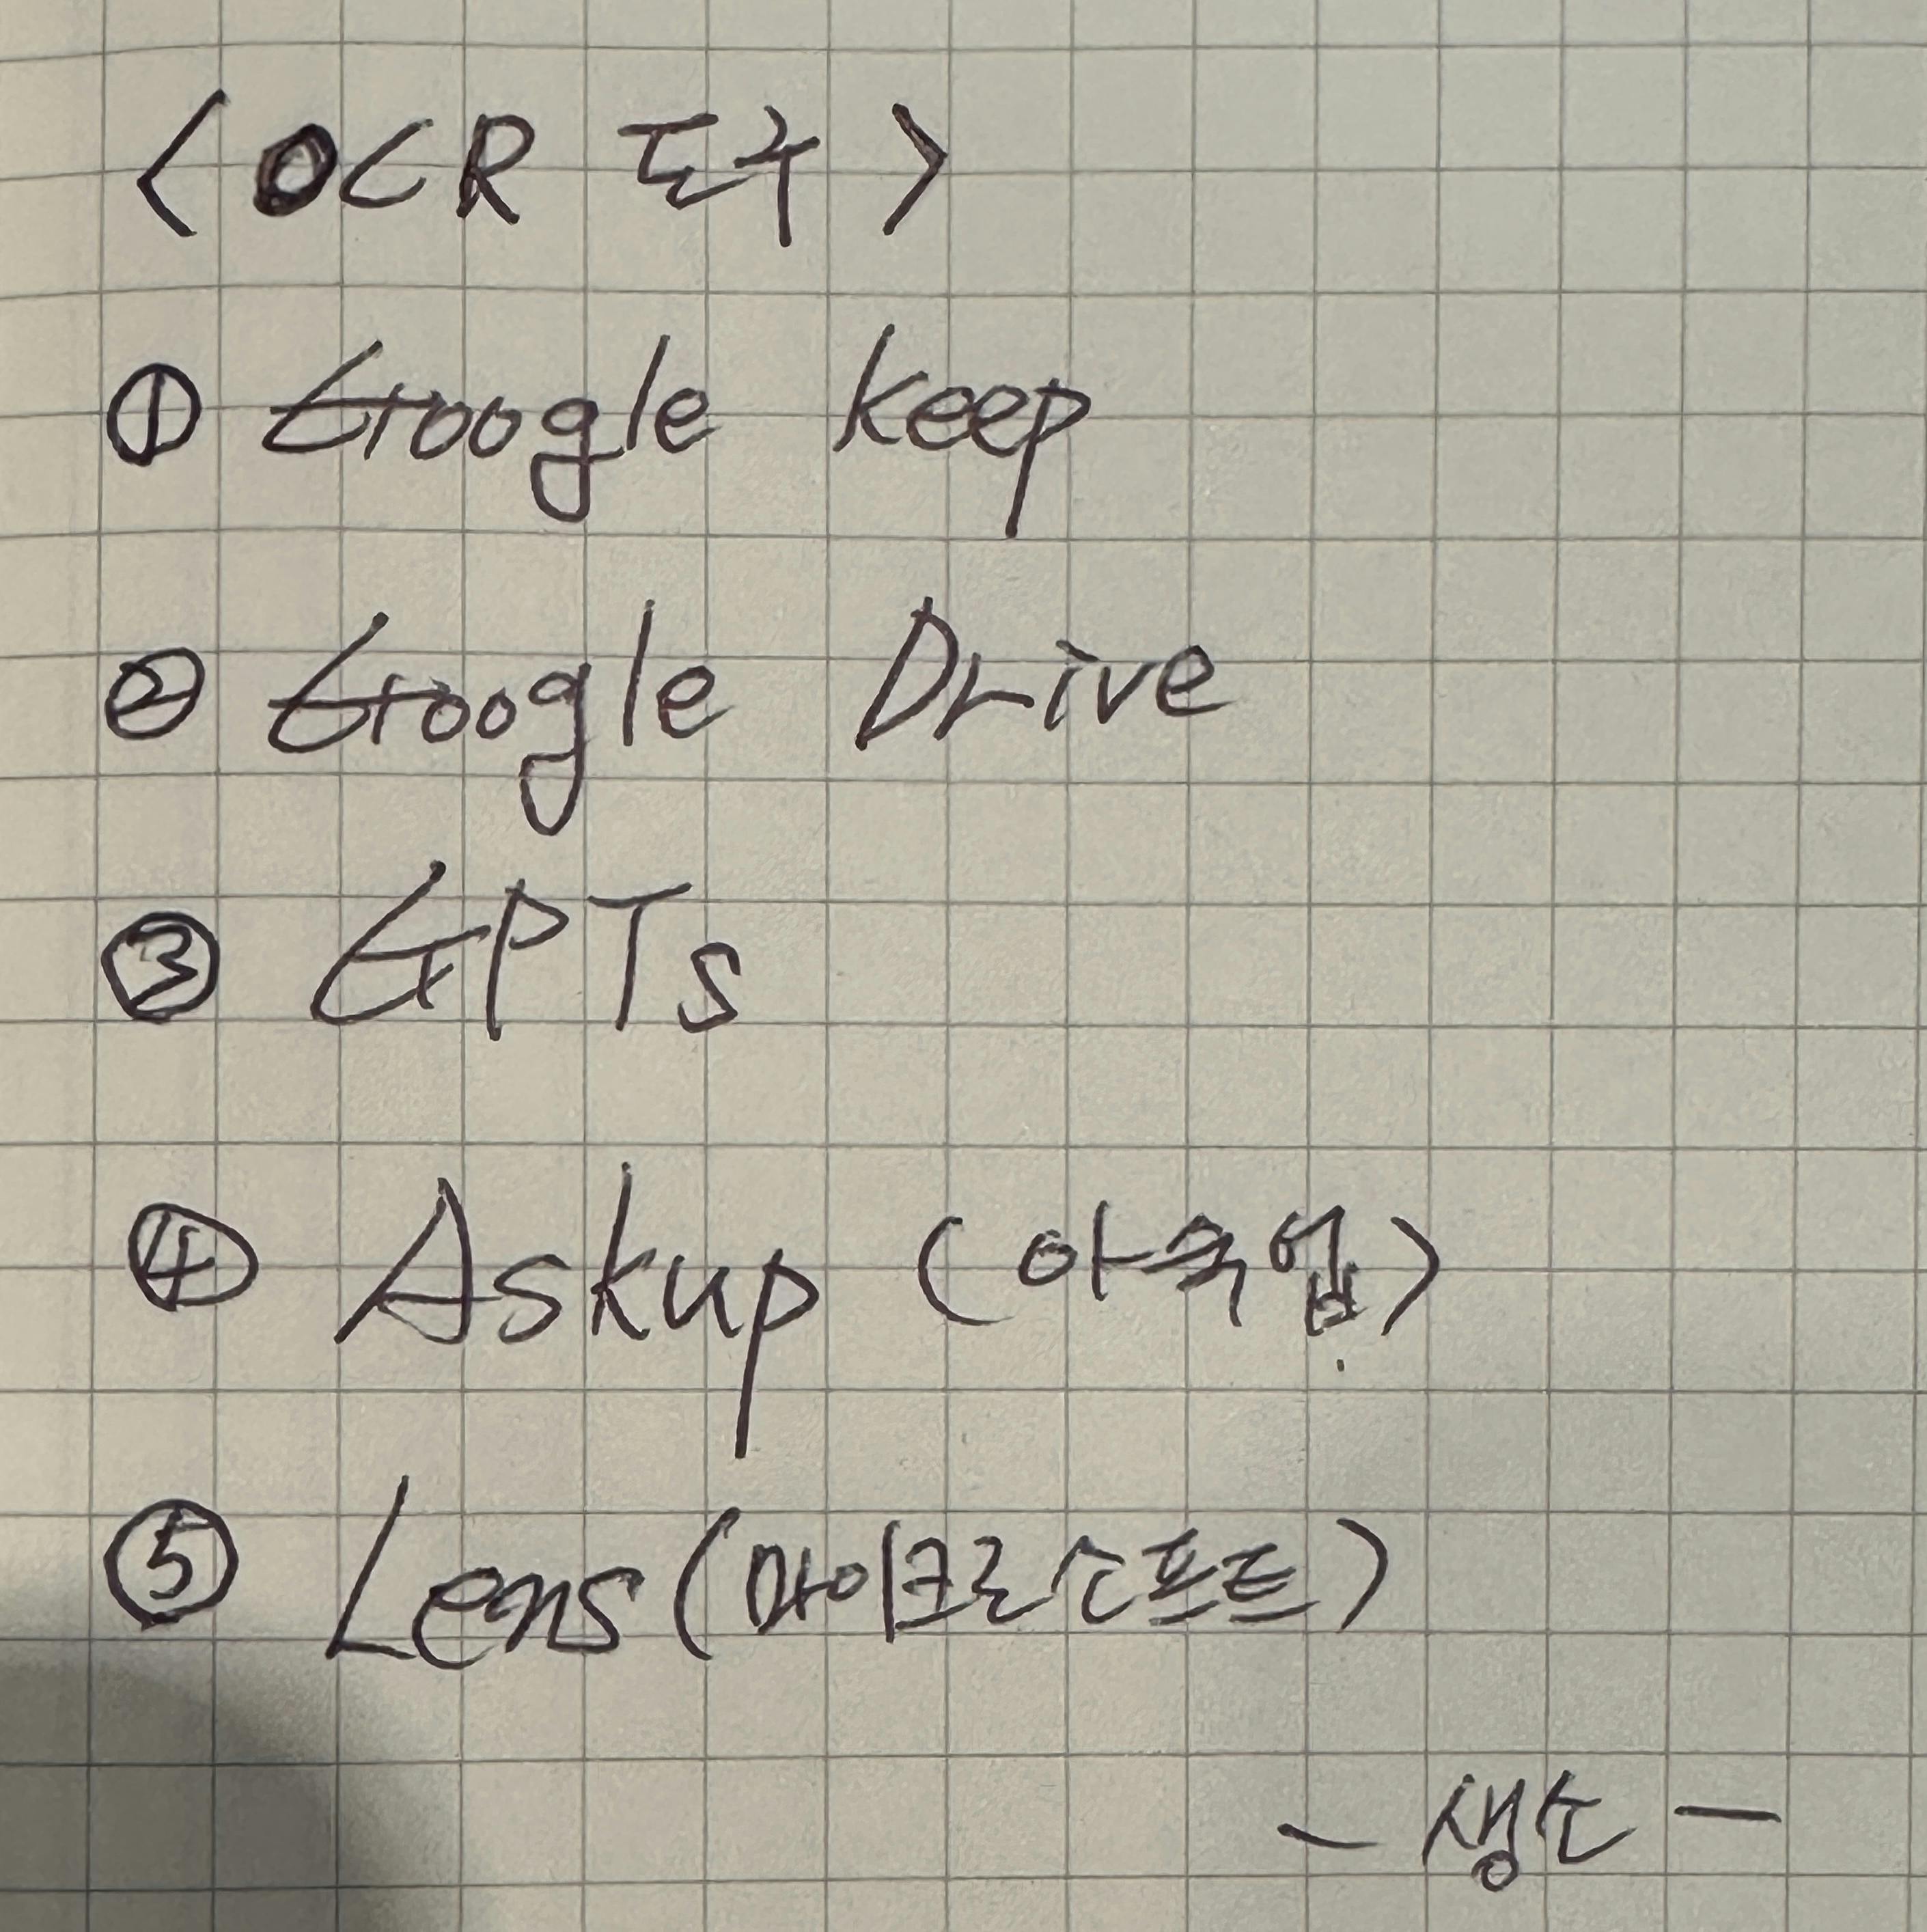 <OCR 도구>
① Google keep
② Google Drive
③ GPTs
④ Askup (아숙업)
⑤ Lens (마이크로소프트)
- 생소 -